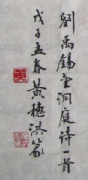 劉禹錫望洞庭詩一首
戊子孟春黃穗洪篆